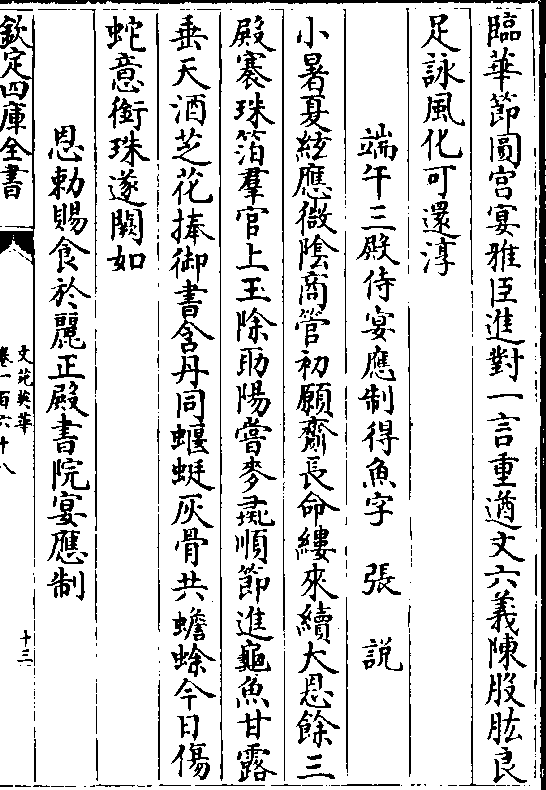 臨華節圓宫宴雅臣進對一言重遒文六義陳股肱良
足詠風化可還淳
端午三殿侍宴應制得魚字 張說
小暑夏絃應徴陰商管初願齎長命縷來續大恩餘三
殿褰珠箔羣官上玉除助陽嘗麥彘順節進龜魚甘露
垂天酒芝花捧御書含丹同蝘蜓灰骨共蟾蜍今日傷
蛇意銜珠遂闕如
恩勅賜食於麗正殿書院宴應制
欽定四庫全書
文苑英華
卷一百六十八
十三